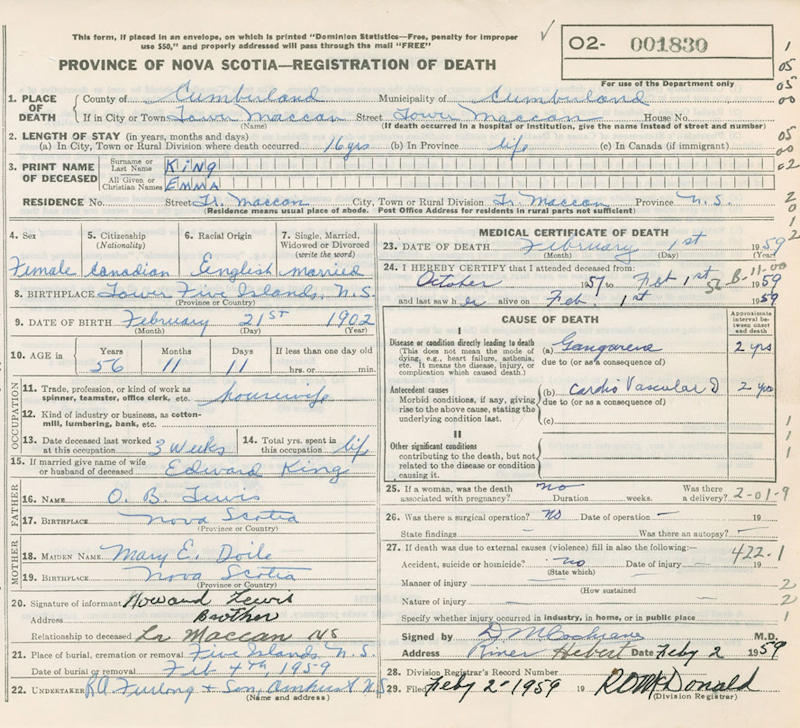 This form, if placed in an envelope, on which is printed "Dominion Statistics—Free, penalty for improper
use $50," and properly addressed will pass through the mail "FREE"
O2- 001830
PROVINCE OF NOVA SCOTIA—REGISTRATION OF DEATH
For use of the Department only
1. PLACE OF DEATH
County of Cumberland Municipality of Cumberland
If in City or Town Lower Maccan Street Lower Maccan House No.
(Name) (If death occurred in a hospital or institution, give the name instead of street and number)
2. LENGTH OF STAY (in years, months and days)
(a) In City, Town or Rural Division where death occurred 16 yrs (b) In Province life (c) In Canada (if immigrant)
3. PRINT NAME OF DECEASED
Surname or Last Name KING
All Given or Christian Names EMMA
RESIDENCE No. Street Lr. Maccan City, Town or Rural Division Lr. Maccan Province N.S.
(Residence means usual place of abode. Post Office Address for residents in rural parts not sufficient)
4. Sex 5. Citizenship (Nationality) 6. Racial Origin 7. Single, Married, Widowed or Divorced (write the word)
Female Canadian English married
8. BIRTHPLACE Lower Five Islands, N.S.
(Province or Country)
9. DATE OF BIRTH February 21ST 1902
(Month) (Day) (Year)
10. AGE in Years Months Days If less than one day old
56 11 11 hrs. or min.
OCCUPATION
11. Trade, profession, or kind of work as
spinner, teamster, office clerk, etc. housewife
12. Kind of industry or business, as cotton-
mill, lumbering, bank, etc.
13. Date deceased last worked at this occupation 3 weeks 14. Total yrs. spent in this occupation life
15. If married give name of wife
or husband of deceased Edward King
FATHER
16. NAME O. B. Lewis
17. BIRTHPLACE Nova Scotia
(Province or Country)
MOTHER
18. MAIDEN NAME Mary E. Doile
19. BIRTHPLACE Nova Scotia
(Province or Country)
20. Signature of informant Howard Lewis
Address Brother
Relationship to deceased Lr Maccan NS
21. Place of burial, cremation or removal Five Islands N.S.
Date of burial or removal Feb 4th, 1959
22. UNDERTAKER R.A. Furlong + Son, Amherst N.S.
(Name and address)
MEDICAL CERTIFICATE OF DEATH
23. DATE OF DEATH February 1st 1959
(Month) (Day) (Year)
24. I HEREBY CERTIFY that I attended deceased from:
October 1957 to Feb 1st 1959
and last saw her alive on Feb 1st 1959
CAUSE OF DEATH
Approximate interval between onset and death
I
Disease or condition directly leading to death
(This does not mean the mode of
dying, e.g., heart failure, asthenia,
etc. It means the disease, injury, or
complication which caused death.)
(a) Gangarene 2 yrs
due to (or as a consequence of)
Antecedent causes
Morbid conditions, if any, giving
rise to the above cause, stating the
underlying condition last.
(b) Cardio Vascular D 2 yrs
due to (or as a consequence of)
(c)
II
Other significant conditions
contributing to the death, but not
related to the disease or condition
causing it.
25. If a woman, was the death no Was there
associated with pregnancy? Duration weeks. a delivery? 2-01-9
26. Was there a surgical operation? NO Date of operation — 19
State findings — Was there an autopsy? —
27. If death was due to external causes (violence) fill in also the following:—
422.1
Accident, suicide or homicide? no Date of injury — 19
(State which)
Manner of injury
(How sustained
Nature of injury
Specify whether injury occurred in industry, in home, or in public place
Signed by D M Cochrane M.D.
Address River Hebert Date Feby 2 1959
28. Division Registrar's Record Number
29. Filed Feby 2-1959 19 R O McDonald
(Division Registrar)